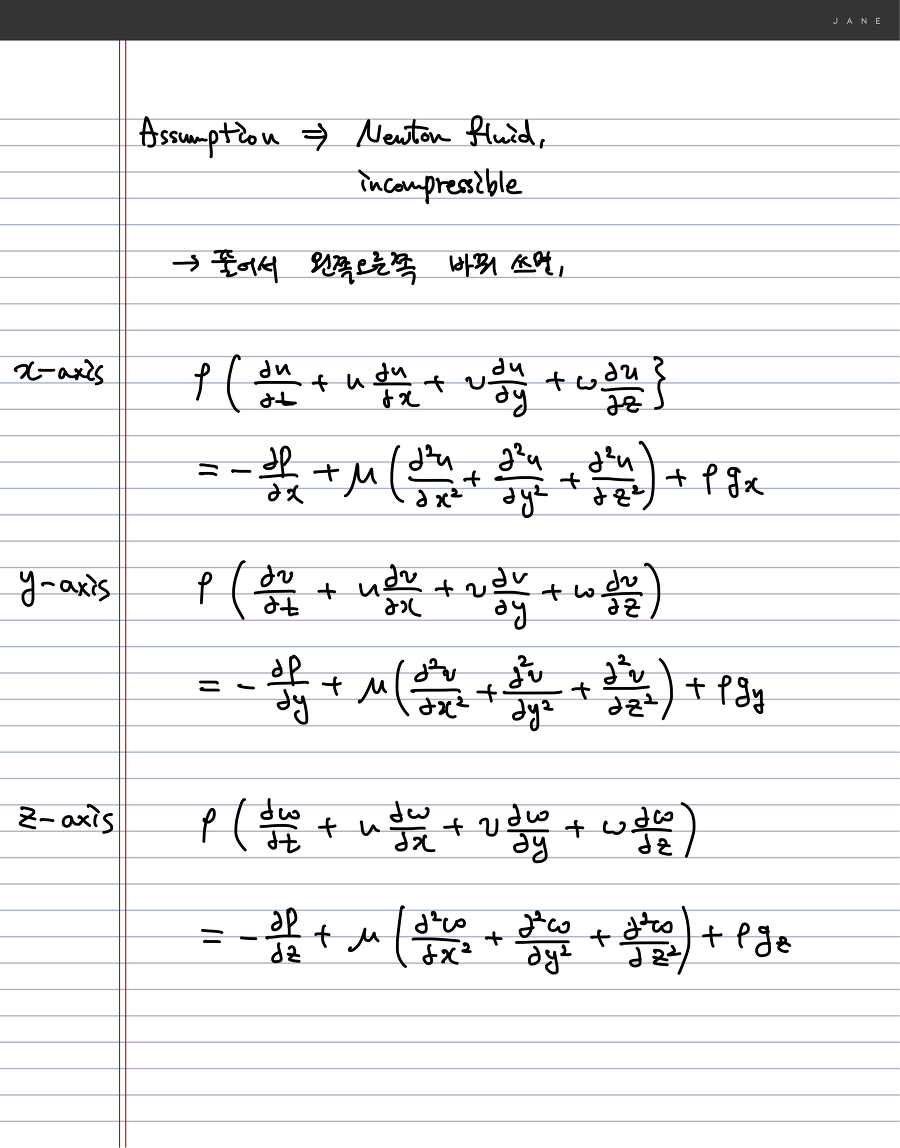 JANE
Assumption ⇒ Newton fluid,
incompressible
→ 풀어서 왼쪽오른쪽 바꿔 쓰면,
x-axis ρ ( ∂u/∂t + u ∂u/∂x + v ∂u/∂y + w ∂u/∂z }
= - ∂P/∂x + μ ( ∂²u/∂x² + ∂²u/∂y² + ∂²u/∂z² ) + ρ gₓ
y-axis ρ ( ∂v/∂t + u ∂v/∂x + v ∂v/∂y + w ∂v/∂z )
= - ∂P/∂y + μ ( ∂²v/∂x² + ∂²v/∂y² + ∂²v/∂z² ) + ρ g_y
z-axis ρ ( ∂w/∂t + u ∂w/∂x + v ∂w/∂y + w ∂w/∂z )
= - ∂P/∂z + μ ( ∂²w/∂x² + ∂²w/∂y² + ∂²w/∂z² ) + ρ g_z